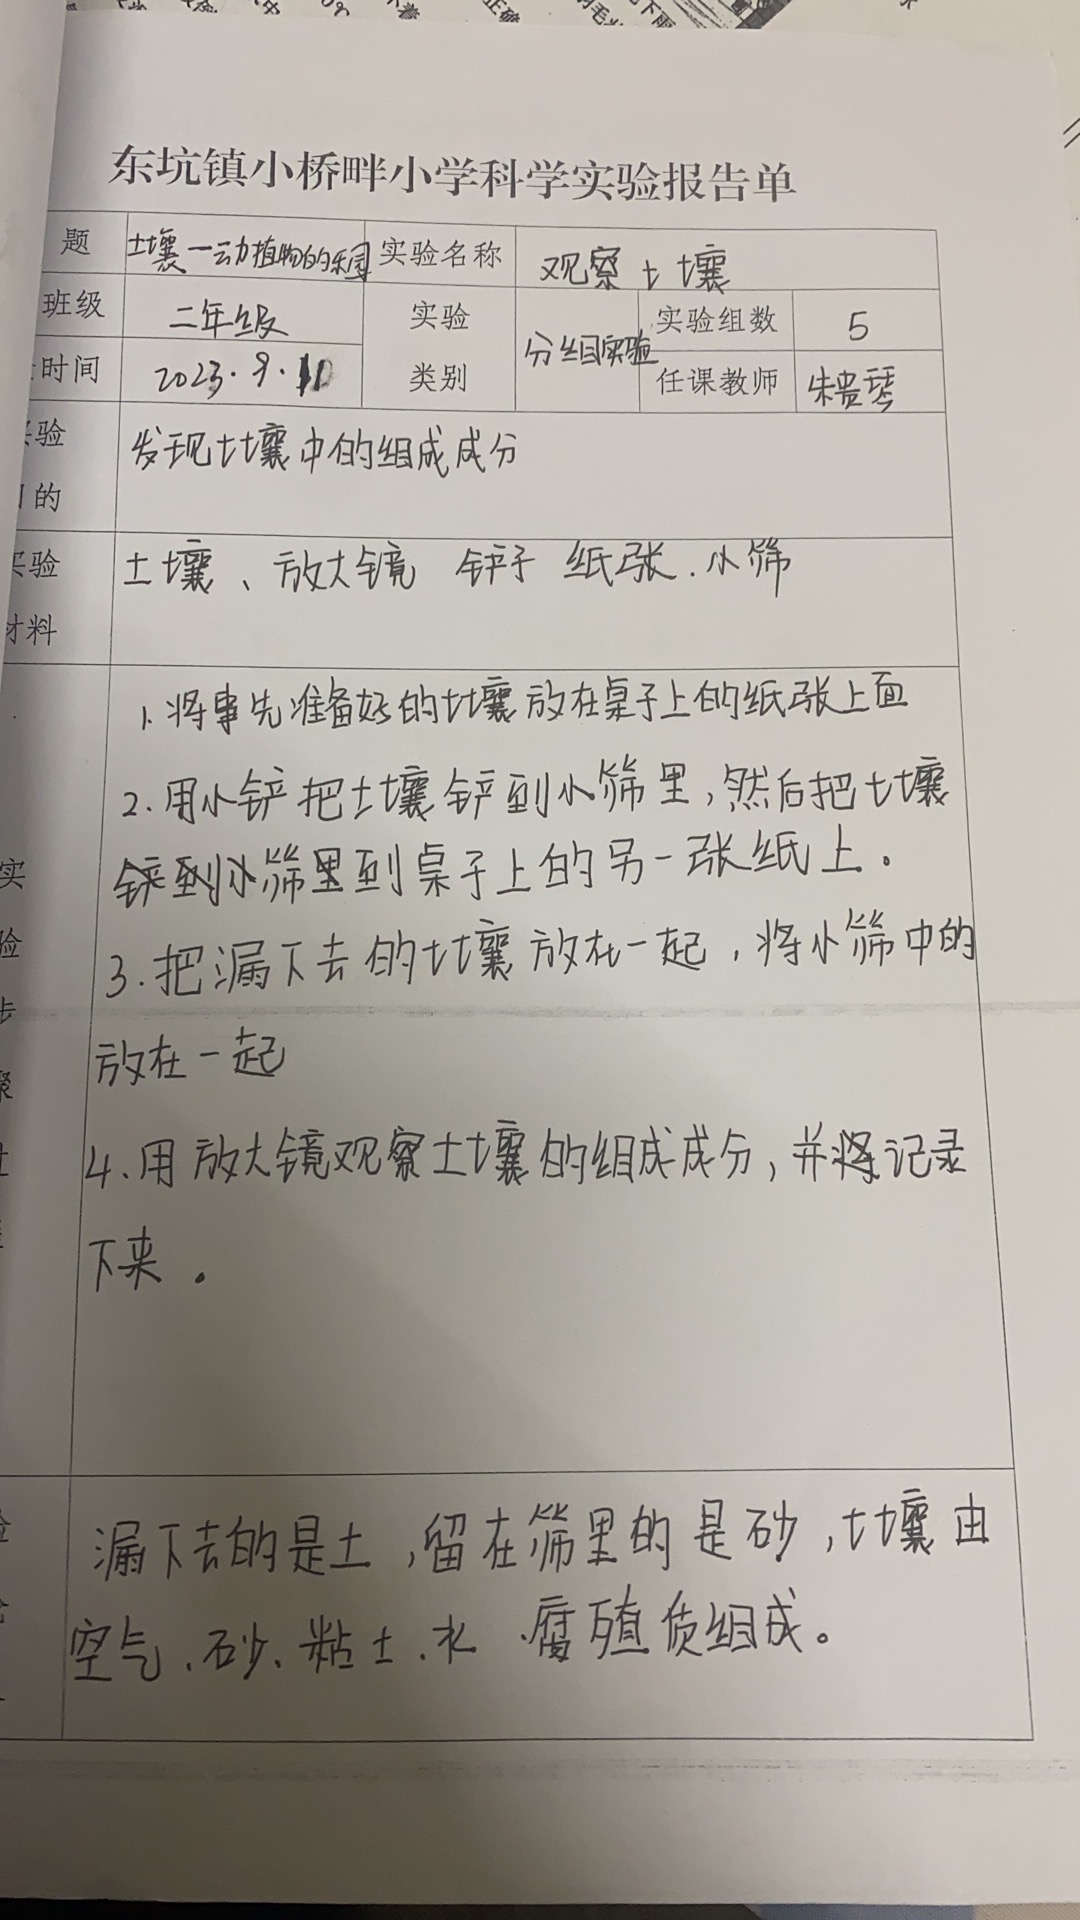 东坑镇小桥畔小学科学实验报告单
题 土壤一动植物的乐园 实验名称 观察土壤
班级 二年级 实验类别 分组实验 实验组数 5
时间 2023.9.10 任课教师 朱贵琴
验的 发现土壤中的组成成分
实验材料 土壤、放大镜 铲子 纸张.小筛
1.将事先准备好的土壤放在桌子上的纸张上面
2.用小铲把土壤铲到小筛里,然后把土壤
铲到小筛里到桌子上的另一张纸上。
3.把漏下去的土壤放在一起,将小筛中的
放在一起
4.用放大镜观察土壤的组成成分,并将记录
下来。
实
验
步
骤
漏下去的是土,留在筛里的是砂,土壤由
空气、砂、粘土.水.腐殖质组成。